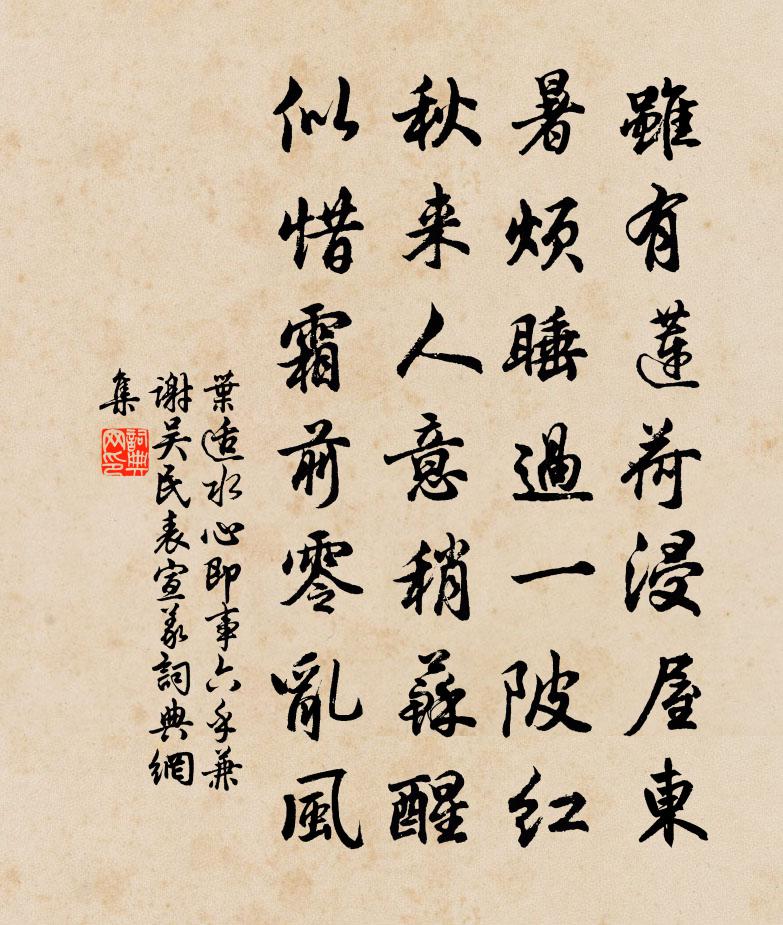 雖有蓮荷浸屋東
暑煩睡過一陂紅
秋来人意稍蘇醒
似惜霜前零亂風
葉適水心即事六手兼
謝吴民表宣義詞典網
集
詞典
网印